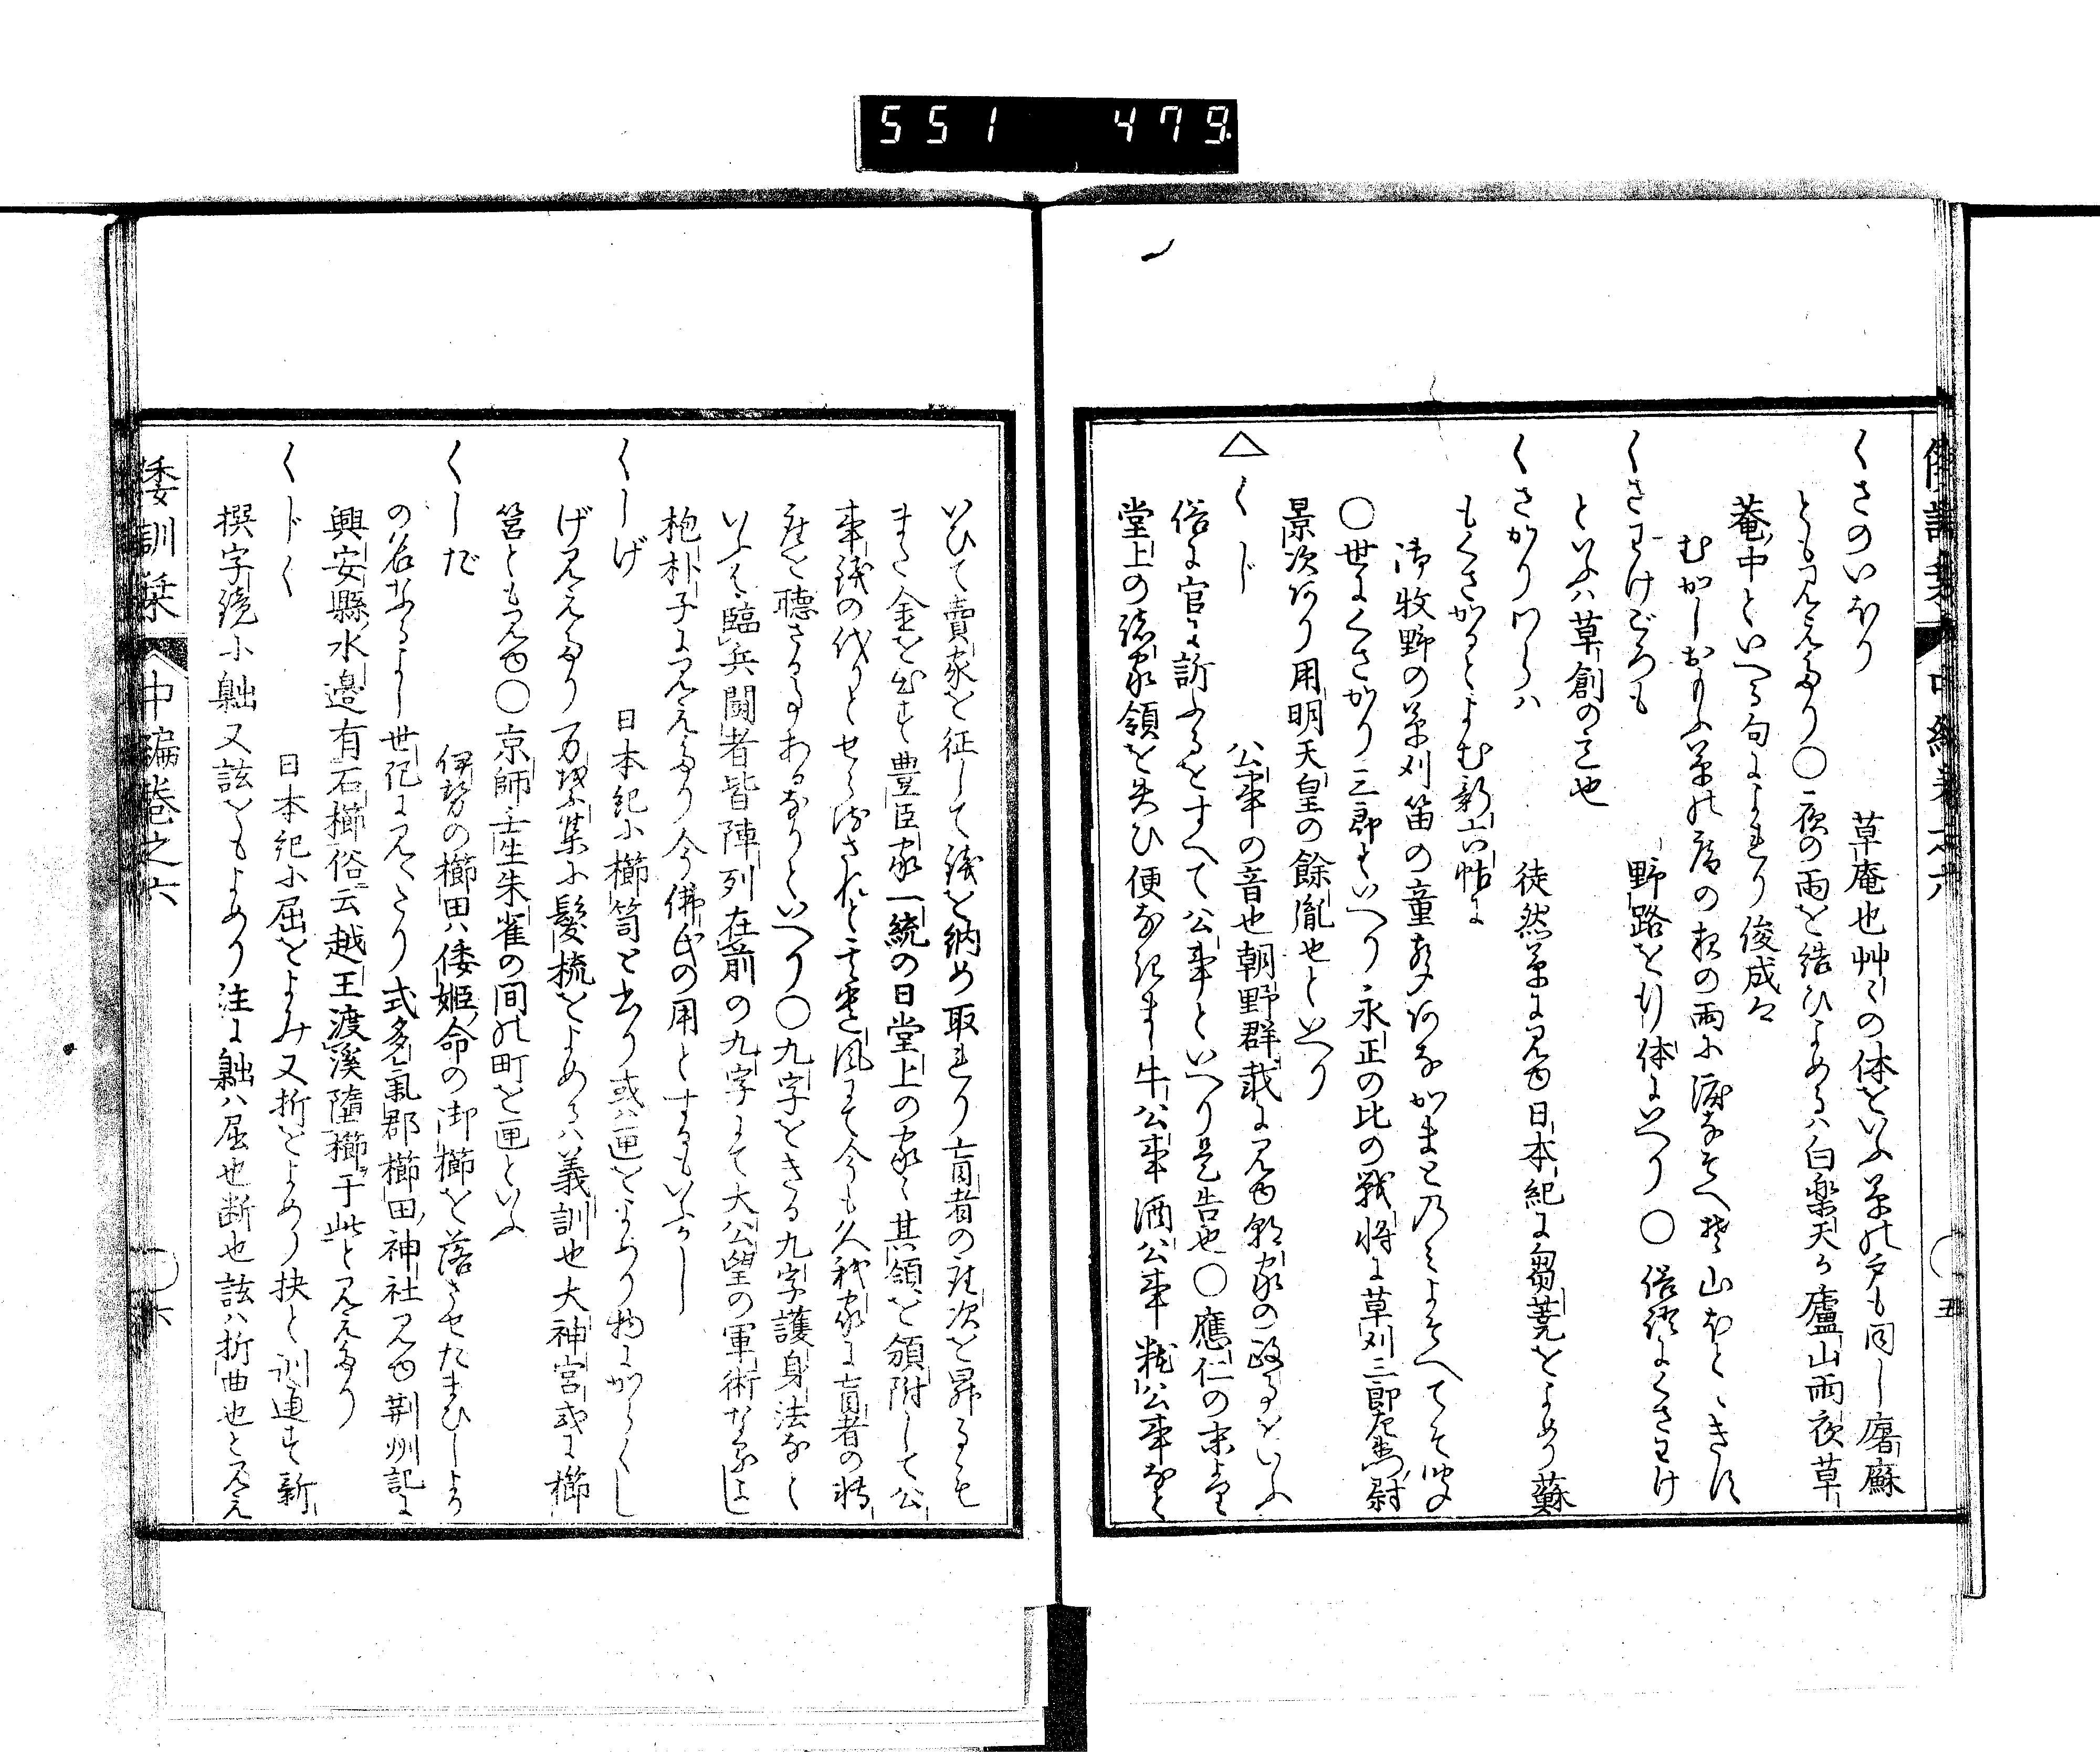 551 479
くさのいほり 草庵也艸々の体をいふ草の戸も同し屠蘇
とも見えたり〇夜の雨を結ひよめるハ白楽天か廬山雨夜草
菴中といへる句によれり俊成卿
むかしおもふ草の庵の夜の雨に涙なそへそ山ほとゝきす
くさわけごろも 野路をわけ行体にいへり〇俗語にくさわけ
といふハ草創の意也
くさかりわらハ 徒然草に見ゆ日本紀に芻蕘をよめり蘇
もくさかるとよむ新六帖に
御牧野の草刈笛の童
〇世にくさかり三郎といへり永正の比の戦将に草刈三郎左衛門尉
景次あり用明天皇の餘胤也といへり
△くじ 公事の音也朝野群載に見ゆ公家の政事をいふ
俗に官に訴ふるをすへて公事といへり是告也〇應仁の末より
堂上の諸家領を失ひ便なきまゝ牛公事酒公事麹公事なと
いひて賣家を征して銭を納め取れり盲者の座次を昇るも
また金を出す豊臣家一統の日堂上の家々其領を頒附して公
事銭の代りとせらるされと其遺風にて今も久我家に盲者の轉
座を聴さるゝ事あるなりといへり〇九字をきる九字護身法なと
いふは臨兵闘者皆陣列在前の九字にて大公望の軍術なるよし
抱朴子に見えたり今佛氏の用とするもいふかし
くしげ 日本紀に櫛笥と書り或ハ匣をよめり物にかくし
げ見えたり万葉集に髪梳をよめるハ義訓也大神宮式に櫛
筥とも見ゆ〇京師壬生朱雀の間の町を匣といふ
くしだ 伊勢の櫛田ハ倭姫命の御櫛を落させたまひしより
の名なるよし世記に見えたり式多氣郡櫛田神社見ゆ荆州記に
興安縣水邉有石櫛俗云越王渡溪墮櫛于此と見えたり
くじく 日本紀に屈をよみ又折をよめり抉と訓通す新
撰字鏡に䠂又該をもよめり注に䠂ハ屈也断也該ハ折曲也と見え
倭訓栞 中編巻之六 〇五
倭訓栞 中編巻之六 〇六